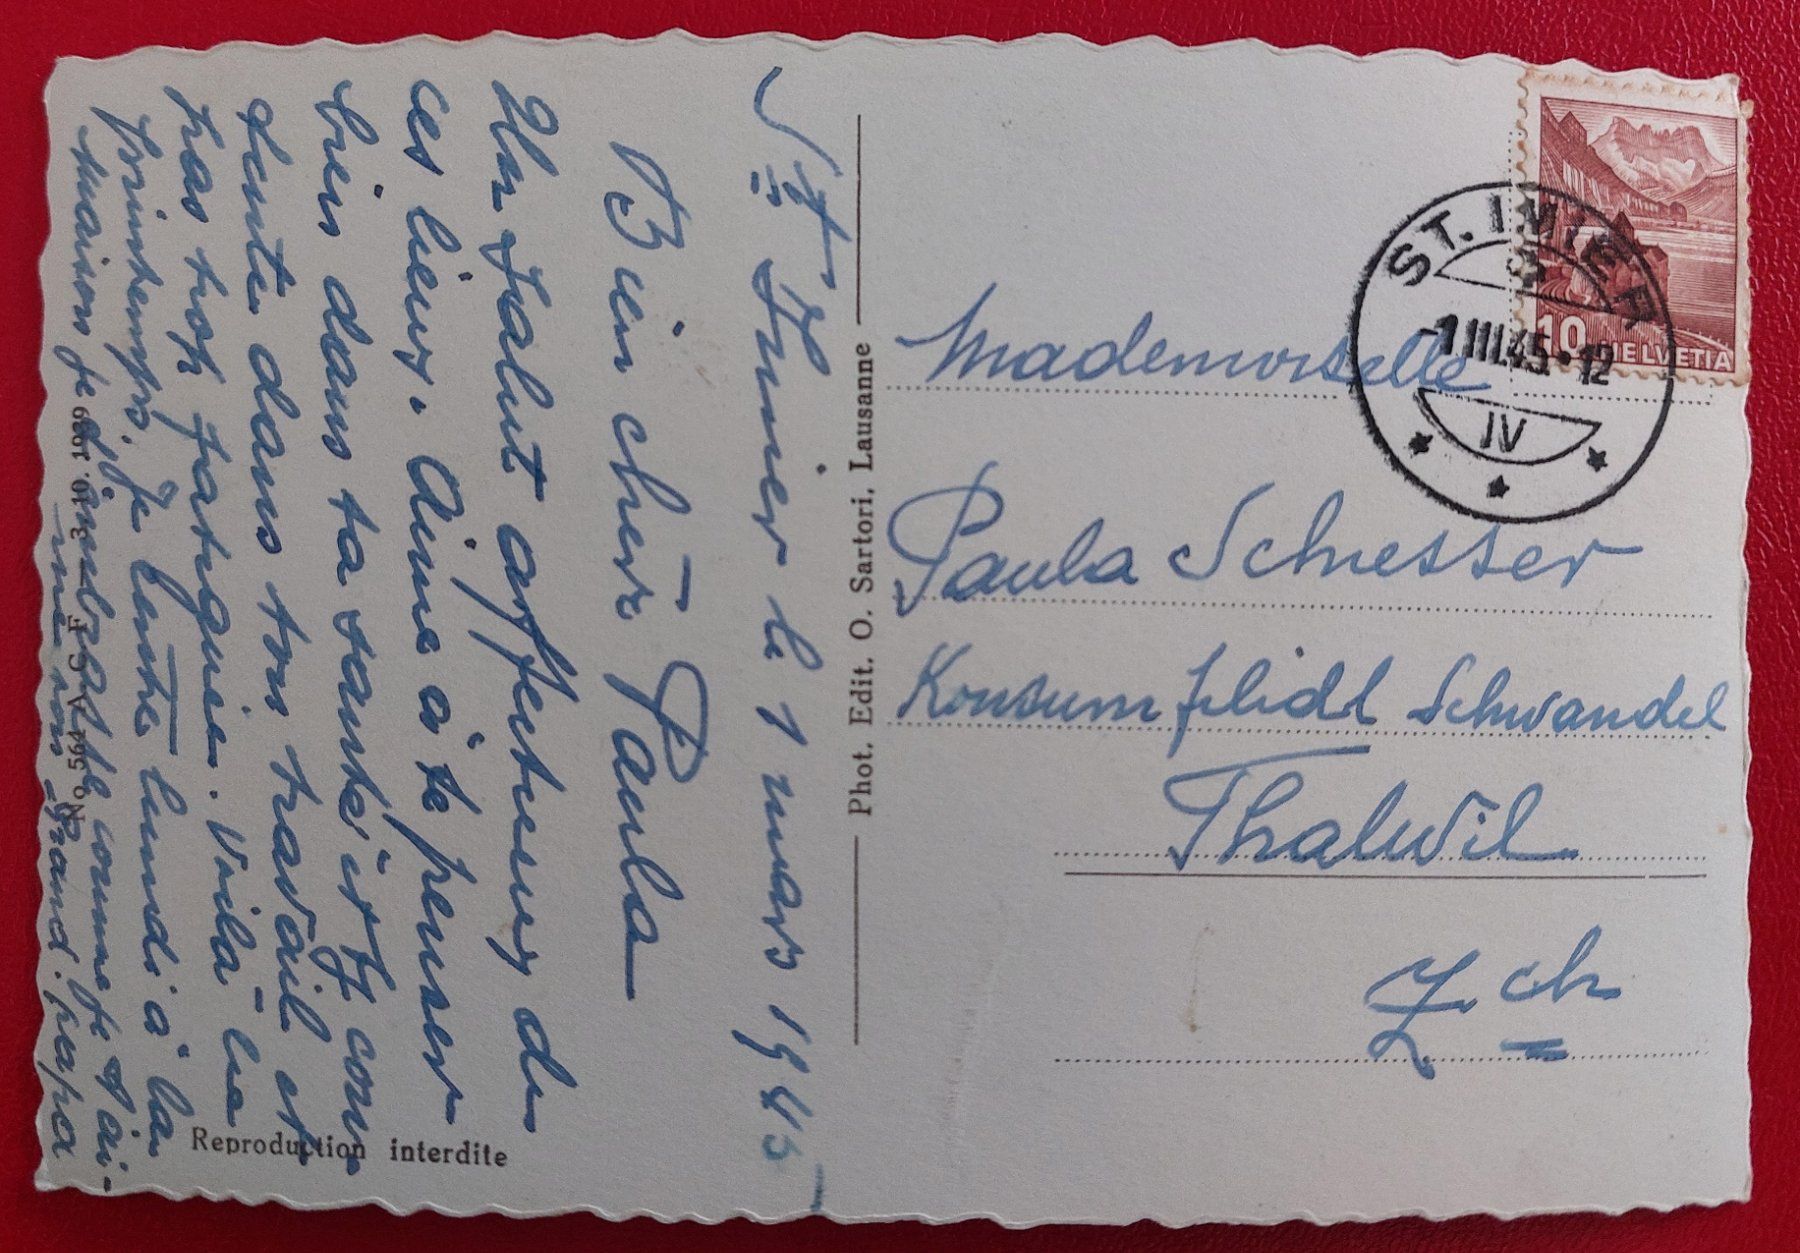 St Imier le 1 mars 1945
Bien chère Paula
Un salut affectueux de
ces lieux. Aime à te penser
bien dans ta santé et con
tente dans ton travail et
pas trop fatiguée. Voilà le
printemps. Je lundi à la
maison je comme je
mon Grand. papa
Phot. Edit. O. Sartori, Lausanne
No 564 A C F 3. 10. 1939
Reproduction interdite
ST. IMIER
-1.III.45.-12
IV
10
HELVETIA
Mademoiselle
Paula Schesser
Konsum filidl Schwandel
Thalwil
Zch